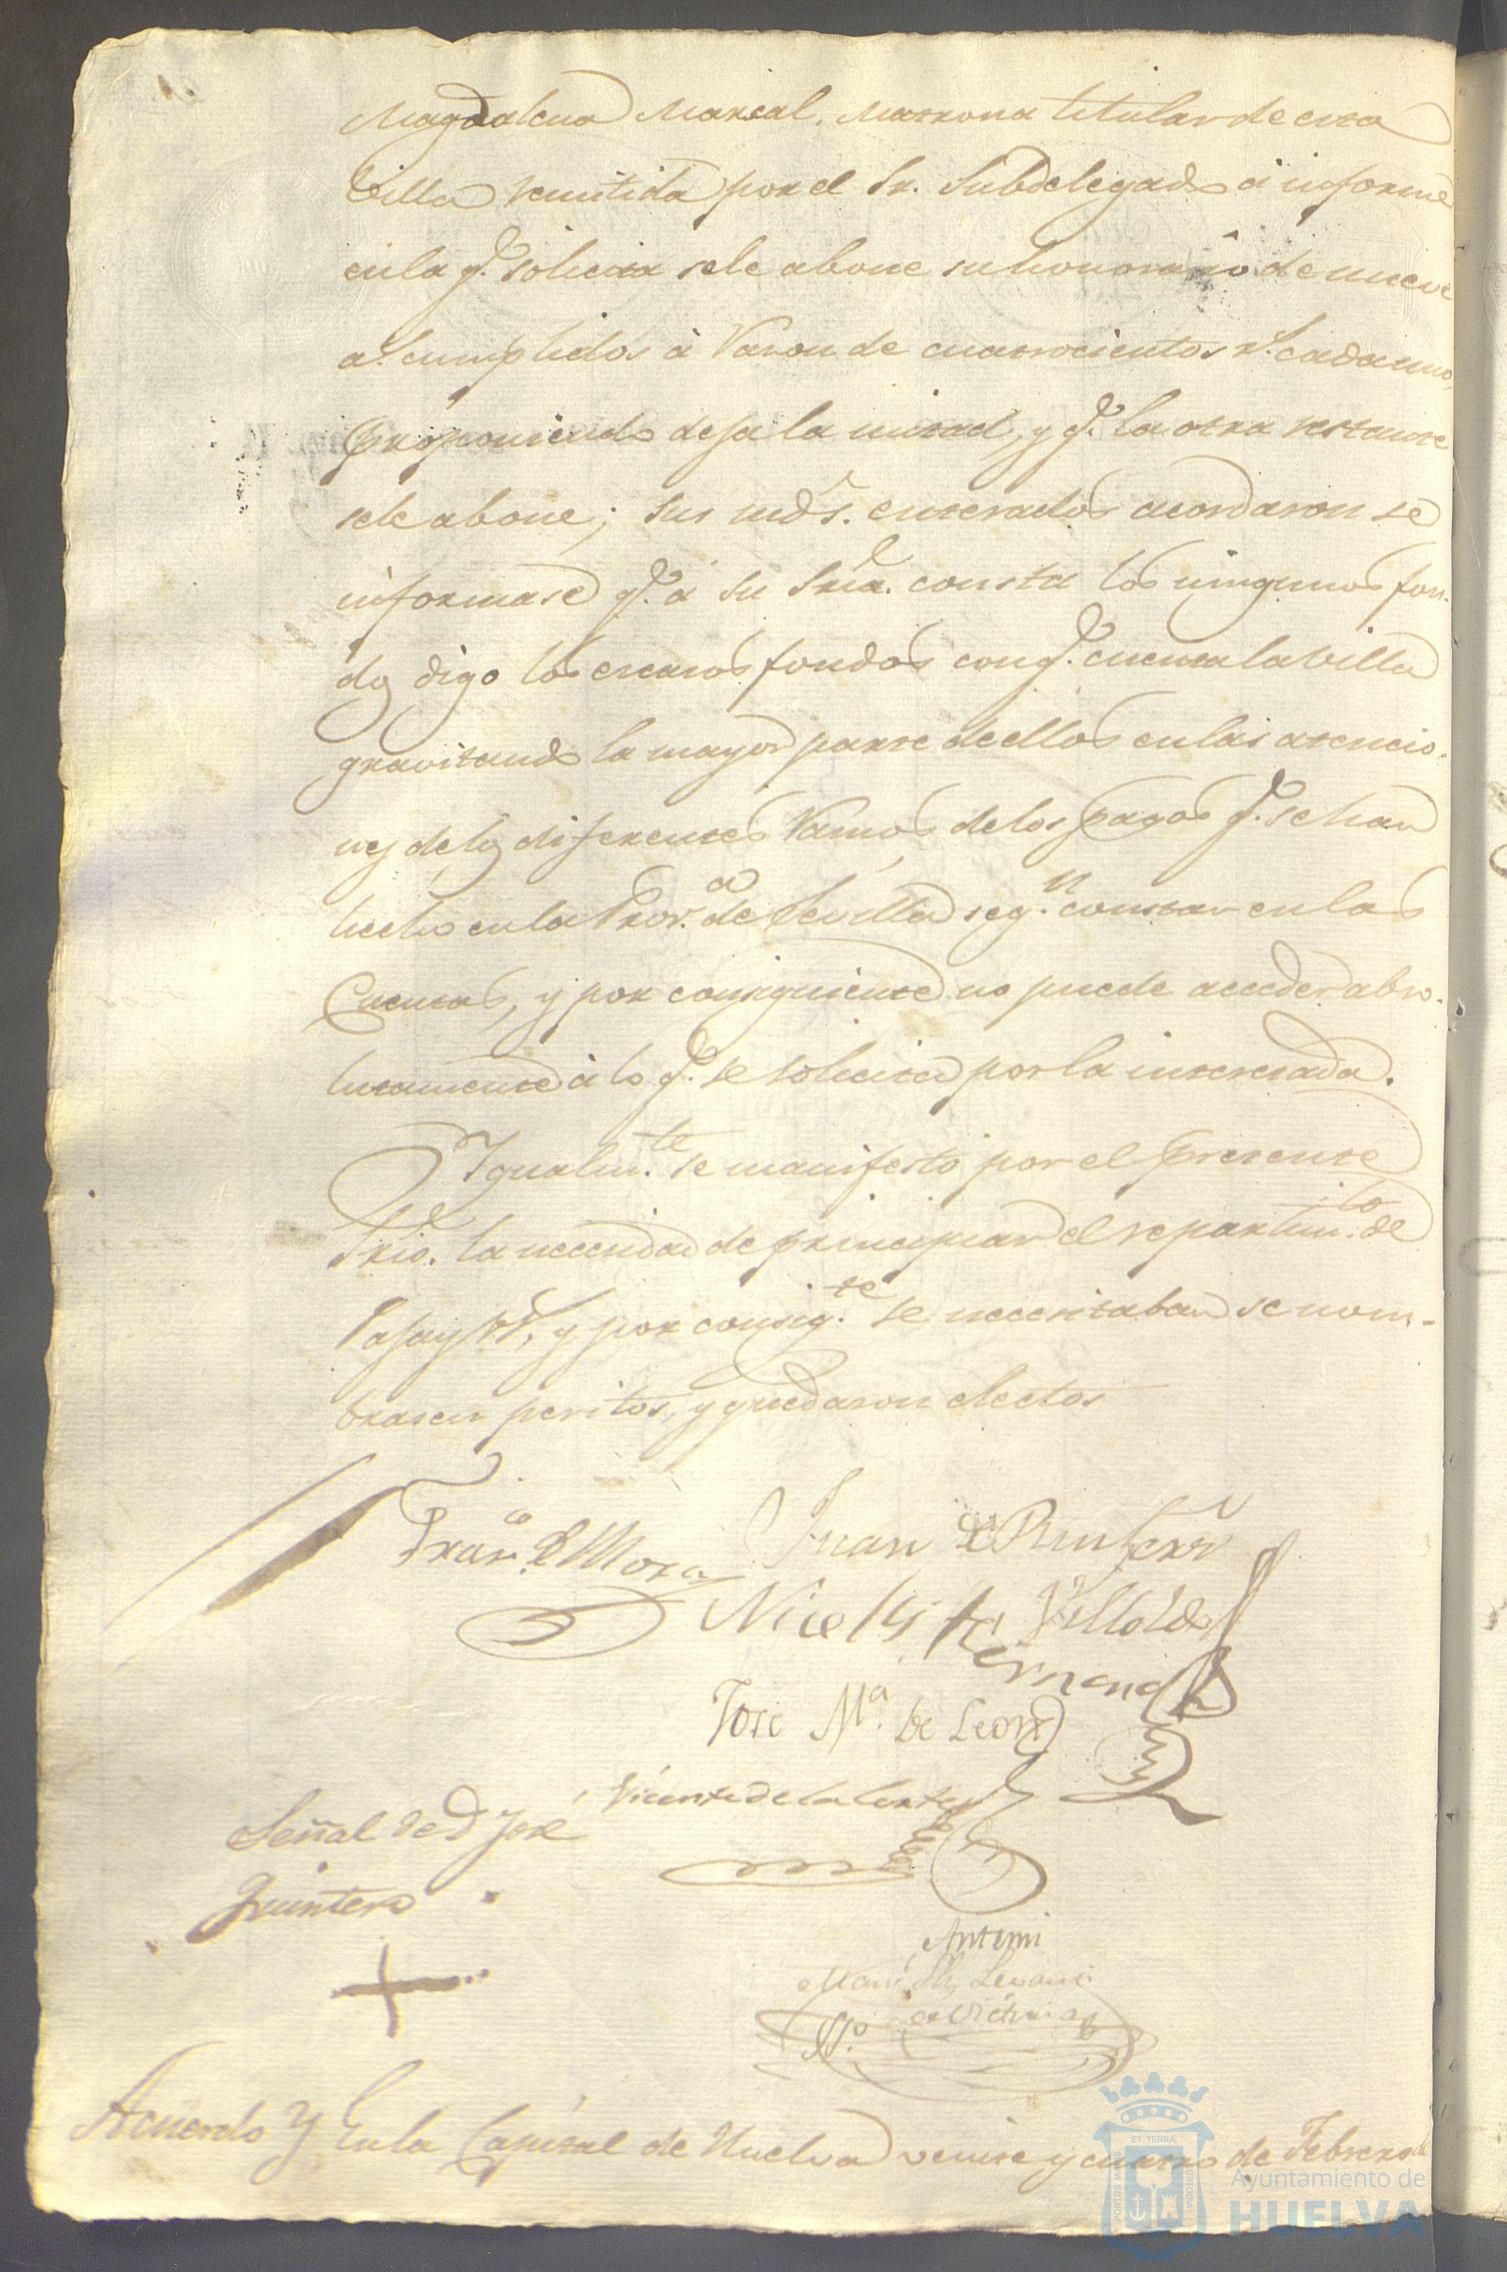 Magdalena Marcal, Matrona titular de esta
Villa remitida por el Sr. Subdelegado a informe
en la q.e solicita se le abone su honorario de nueve
a.s cumplidos à razon de cuatrocientos r.s cada uno,
proponiendo deja la mitad, y q.e la otra restante
se le abone; sus mds. enterados acordaron se
informase q.e a su Sria. consta los ningunos fon-
dos digo los escasos fondos con q.e cuenta la villa
gravitando la mayor parte de ellos en las atencio-
nes de los diferentes ramos de los pagos q.e se han
hecho en la Prov.a de Sevilla seg.n constar en las
Cuentas, y por consiguiente no puede acceder abso-
lutamente à lo q.e se solicita por la interesada.
Igualm.te se manifesto por el presente
Srio. la necesidad de principiar el repartim.to de
Paja y , y por consig.te se necesitaban se nom-
brasen peritos, y quedaron electos
Fran.co de Mora
Juan de
Nicolas Villoldo
Fernand
Jose M.a de Leon
Vicente de la Corte
Señal de D José
Quintero
Antemi
Man
de Victoria
Sr.o
Acuerdo Y En la Capital de Huelva veinte y cuatro de Febrero de
ET TERRAE
PORTUS MARIS
CUSTODIA
Ayuntamiento de
HUELVA